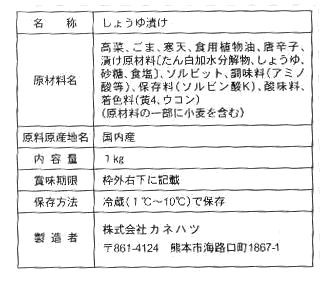 名称 しょうゆ漬け
原材料名 高菜、ごま、寒天、食用植物油、唐辛子、
漬け原材料〔たん白加水分解物、しょうゆ、
砂糖、食塩〕、ソルビット、調味料(アミノ
酸等)、保存料(ソルビン酸K)、酸味料、
着色料(黄4、ウコン)
(原材料の一部に小麦を含む)
原料原産地名 国内産
内容量 1kg
賞味期限 枠外右下に記載
保存方法 冷蔵(1℃〜10℃)で保存
製造者 株式会社 カネハツ
〒861-4124 熊本市海路口町1867-1